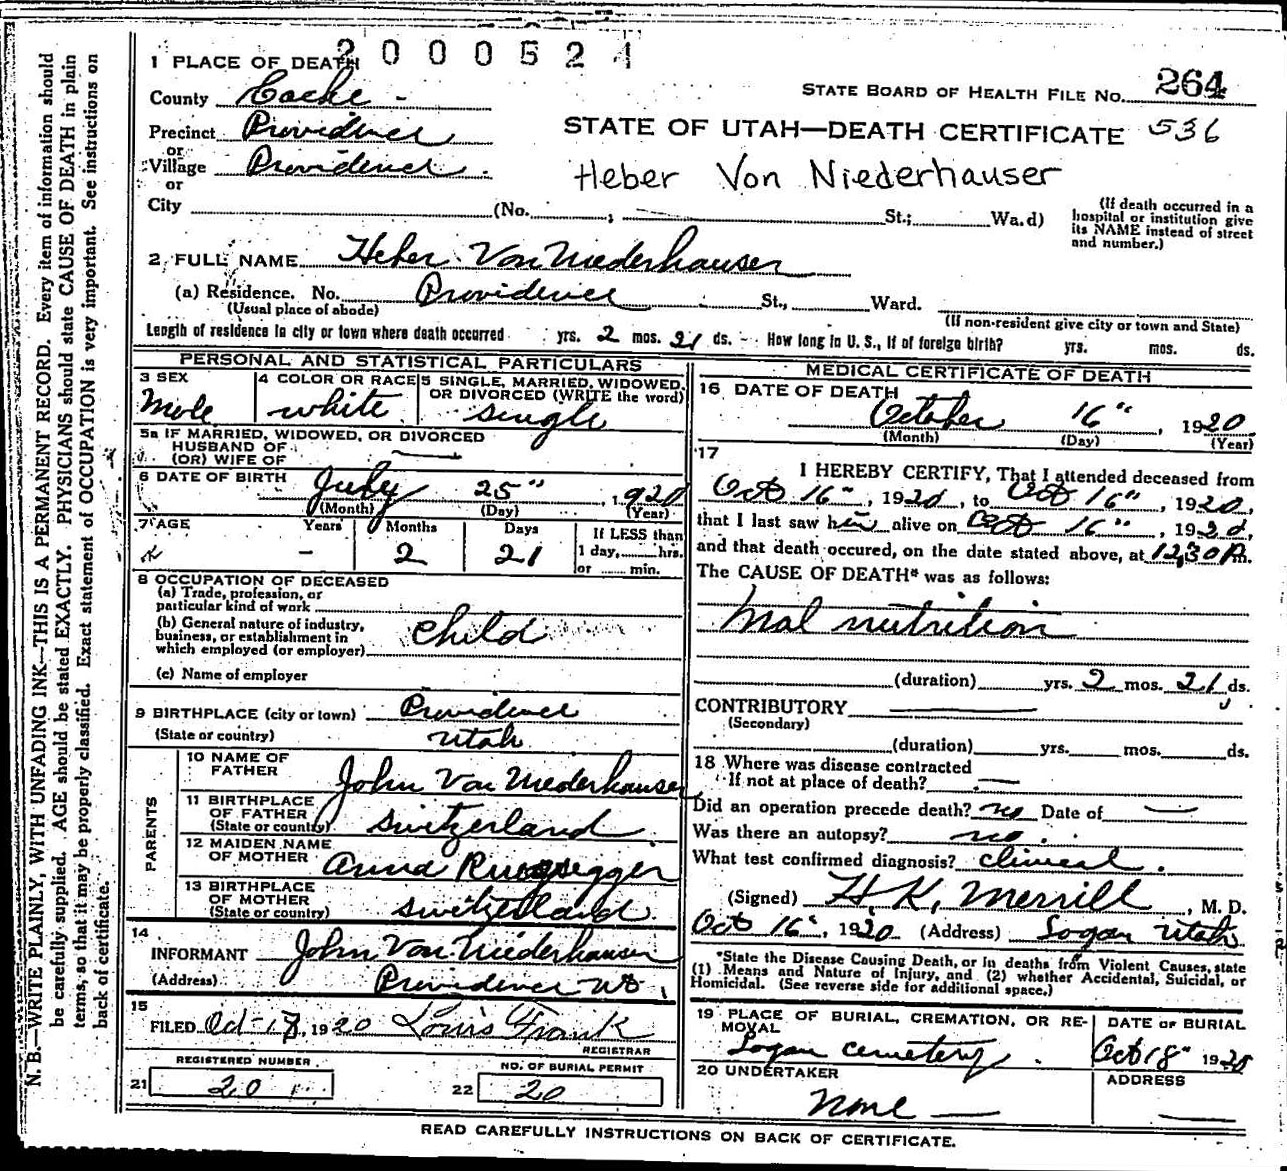 2000524
1 PLACE OF DEATH
County Cache
STATE BOARD OF HEALTH FILE No. 264
Precinct Providence
or
STATE OF UTAH—DEATH CERTIFICATE 536
Village Providence
or
Heber Von Niederhauser
City (No. ; St.; Wa.d)
(If death occurred in a hospital or institution give its NAME instead of street and number.)
2 FULL NAME Heber Von Niederhauser
(a) Residence. No. Providence St., Ward.
(Usual place of abode)
(If non-resident give city or town and State)
Length of residence in city or town where death occurred yrs. 2 mos. 21 ds. How long in U. S., if of foreign birth? yrs. mos. ds.
PERSONAL AND STATISTICAL PARTICULARS
3 SEX
Male
4 COLOR OR RACE
white
5 SINGLE, MARRIED, WIDOWED,
OR DIVORCED (WRITE the word)
single
5a IF MARRIED, WIDOWED, OR DIVORCED
HUSBAND OF
(OR) WIFE OF
6 DATE OF BIRTH July 25" 1920
(Month) (Day) (Year)
7 AGE Years Months Days
– 2 21
If LESS than
1 day, hrs.
or min.
8 OCCUPATION OF DECEASED
(a) Trade, profession, or
particular kind of work
(b) General nature of industry,
business, or establishment in
which employed (or employer) child
(c) Name of employer
9 BIRTHPLACE (city or town) Providence
(State or country) Utah
PARENTS
10 NAME OF
FATHER John Von Niederhauser
11 BIRTHPLACE
OF FATHER
(State or country) Switzerland
12 MAIDEN NAME
OF MOTHER Anna Ruegsegger
13 BIRTHPLACE
OF MOTHER
(State or country) Switzerland
14
INFORMANT John Von Niederhauser
(Address) Providence Ut.
15
FILED Oct-17, 1920 Louis Frank
REGISTRAR
REGISTERED NUMBER
21 20
NO. OF BURIAL PERMIT
22 20
MEDICAL CERTIFICATE OF DEATH
16 DATE OF DEATH
October 16", 1920
(Month) (Day) (Year)
17
I HEREBY CERTIFY, That I attended deceased from
Oct 16", 1920, to Oct 16", 1920,
that I last saw him alive on Oct 16", 1920,
and that death occured, on the date stated above, at 12.30 P.m.
The CAUSE OF DEATH* was as follows:
Mal nutrition
(duration) yrs. 2 mos. 21 ds.
CONTRIBUTORY
(Secondary)
(duration) yrs. mos. ds.
18 Where was disease contracted
If not at place of death?
Did an operation precede death? no Date of
Was there an autopsy? no.
What test confirmed diagnosis? clinical.
(Signed) H. K. Merrill, M. D.
Oct 16", 1920 (Address) Logan Utah
*State the Disease Causing Death, or in deaths from Violent Causes, state
(1) Means and Nature of Injury, and (2) whether Accidental, Suicidal, or
Homicidal. (See reverse side for additional space.)
19 PLACE OF BURIAL, CREMATION, OR RE-
MOVAL
Logan cemetery.
DATE OF BURIAL
Oct 18" 1920
20 UNDERTAKER
None
ADDRESS
READ CAREFULLY INSTRUCTIONS ON BACK OF CERTIFICATE.
N. B.—WRITE PLAINLY, WITH UNFADING INK—THIS IS A PERMANENT RECORD. Every item of information should
be carefully supplied. AGE should be stated EXACTLY. PHYSICIANS should state CAUSE OF DEATH in plain
terms, so that it may be properly classified. Exact statement of OCCUPATION is very important. See instructions on
back of certificate.